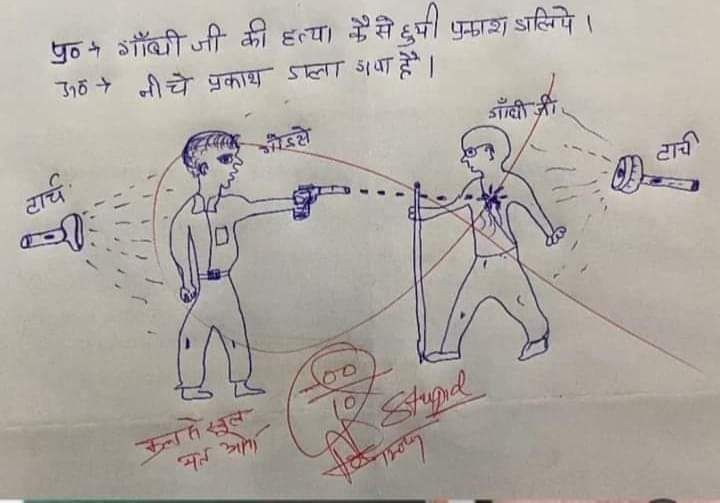 प्र० → गाँधी जी की हत्या कैसे हुयी प्रकाश डालिये।
उ० → नीचे प्रकाश डाला गया है।
गाँधी जी
गोडसे
टार्च
टार्च
00
10
Stupid
कल से स्कूल
मत आना